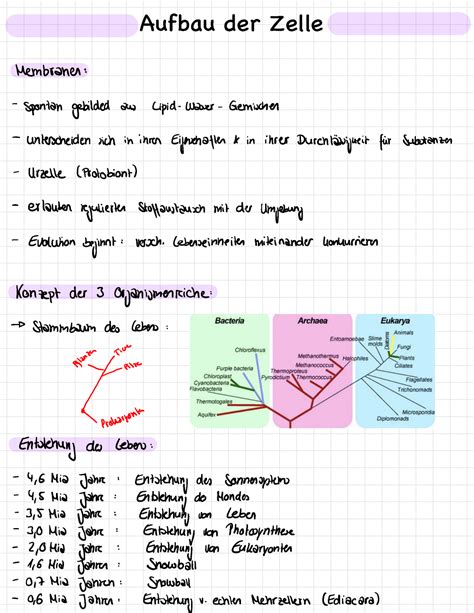 Aufbau der Zelle
Membranen:
- Spontan gebildet aus Lipid-Wasser-Gemischen
- unterscheiden sich in ihren Eigenschaften & in ihrer Durchlässigkeit für Substanzen
- Urzelle (Protobiont)
- erlauben regulierten Stoffaustausch mit der Umgebung
- Evolution beginnt: versch. Lebenseinheiten miteinander konkurrieren
Konzept der 3 Organismenreiche:
→ Stammbaum des Lebens:
Pflanzen
Tiere
Pilze
Prokaryonten
Bacteria
Chloroflexus
Purple bacteria
Chloroplast
Cyanobacteria
Flavobacteria
Thermotogales
Aquifex
Archaea
Methanothermus
Methanococcus
Thermoproteus
Thermococcus
Pyrodictium
Halophiles
Eukarya
Entamoebae
Slime molds
Diatoms
Animals
Fungi
Plants
Ciliates
Flagellates
Trichonomads
Microsporidia
Diplomonads
Entstehung des Lebens:
- 4,6 Mia Jahre : Entstehung des Sonnensystems
- 4,5 Mia Jahre : Entstehung des Mondes
- 3,5 Mia Jahre : Entstehung von Leben
- 3,0 Mia Jahre : Entstehung von Photosynthese
- 2,0 Mia Jahre : Entstehung von Eukaryonten
- 1,6 Mia Jahren : Snowball
- 0,7 Mia Jahren : Snowball
- 0,6 Mia Jahren : Entstehung v. echten Mehrzellern (Ediacara)